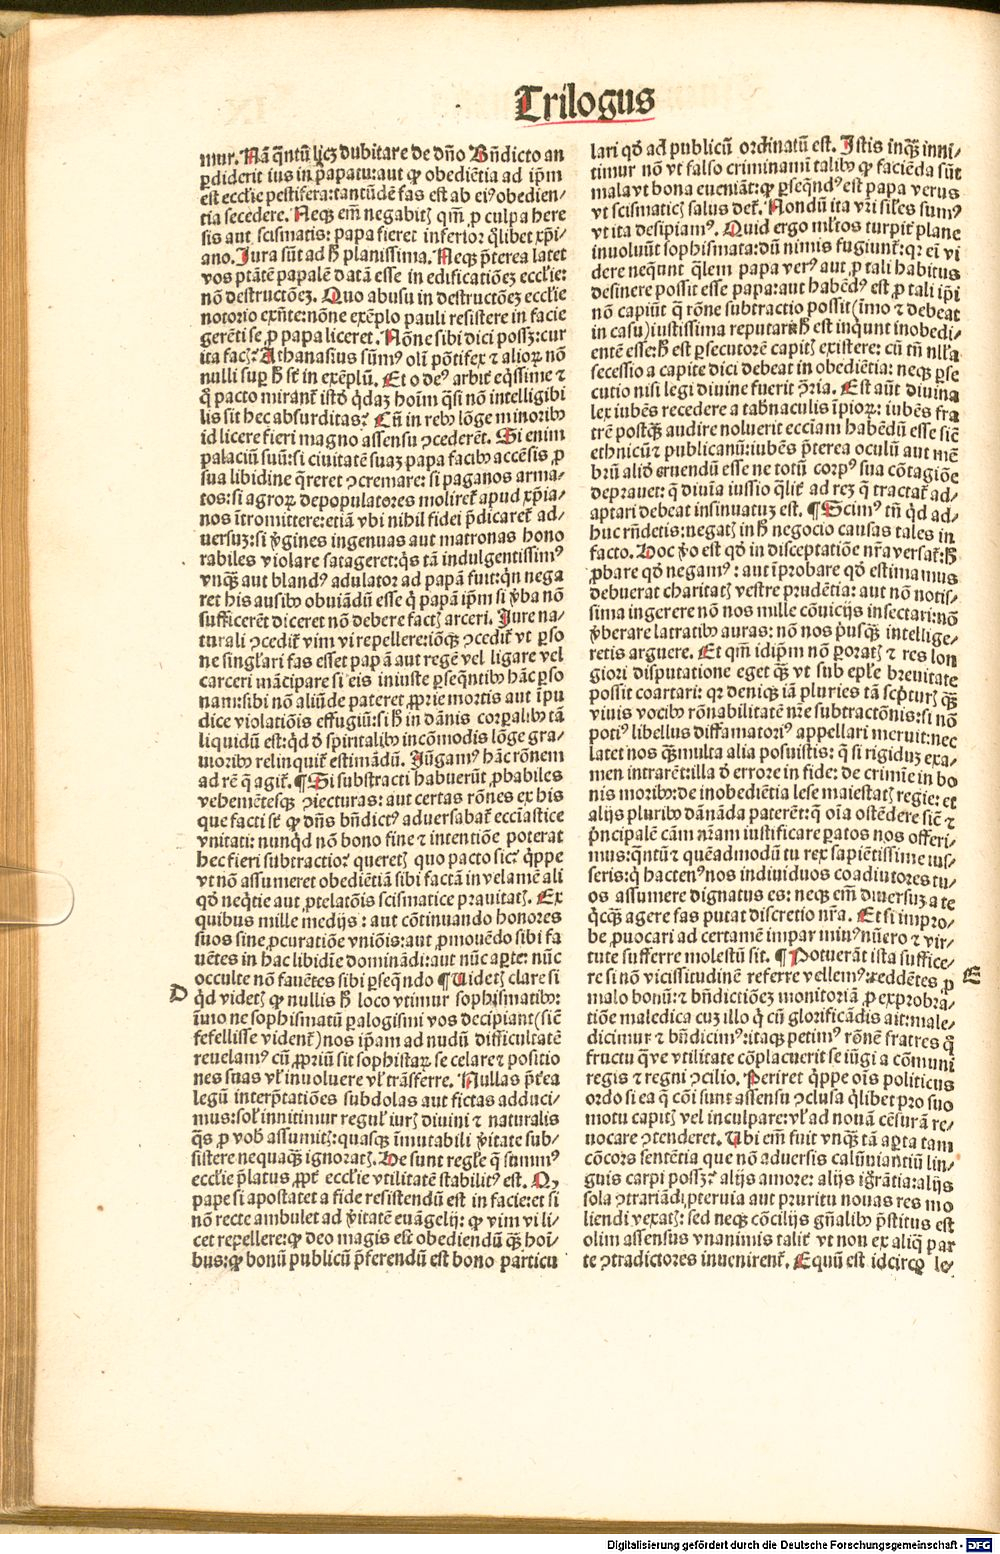 Trilogus
mur. Nā q̄ntū licꝫ dubitare de dn̄o Bn̄dicto an
ꝑdiderit ius in p̄apatu: aut ꝙ obediētia ad ip̄m
est eccl̄ie pestifera: tantūdē fas est ab eiꝰ obedien-
tia secedere. Neqꝫ em̄ negabitꝭ qm̄ ꝓ culpa here
sis aut scismatis: papa fieret inferior q̄libet xp̄i-
ano. Jura sūt ad h̄ planissima. Neqꝫ p̄terea latet
vos ptātē papalē datā esse in edificatiōeꝫ eccl̄ie:
nō destructōeꝫ. Quo abusu in destructōeꝫ eccl̄ie
notorio exn̄te: nōne exēplo pauli resistere in facie
gerēti se ꝓ papa liceret. Nōne sibi dici possꝫ: cur
ita facꝭ? Athanasius sūmꝰ oli pōtifex ⁊ alioꝝ nō
nulli suꝑ h̄ sūt in exēplū. Et o deꝰ arbiť eq̄ssime ⁊
q̄ pacto miranť istđ q̇daꝫ hoim̄ q̄si nō intelligibi
lis sit hec absurditas? Cū in rebꝰ lōge minoribꝰ
id licere fieri magno assensu ꝯcederēt. Si enim
palaciū suū: si ciuitatē suaꝫ papa facibꝰ accēsis ꝓ
sua libidine q̄reret ꝯcremare: si paganos arma-
tos: si agroꝝ depopulatores molireť apud xp̄ia-
nos ītromittere: etiā vbi nihil fidei p̄dicareť ad-
uersuꝫ: si v̄gines ingenuas aut matronas hono
rabiles violare satageret: q̇s tā indulgentissimꝰ
vnqꝫ aut blandꝰ adulator ad papā fuit: qn̄ nega
ret his ausibꝰ obuiādū esse q̇ papā ip̄m si v̄ba nō
sufficerēt diceret nō debere factꝭ arceri. Jure na-
turali ꝯcediť vim vi repellere: iōqꝫ ꝯcediť vt ꝑso
ne singl̄ari fas esset papā aut regē vel ligare vel
carceri mācipare si eis iniuste ꝑseq̄ntibꝰ hāc ꝑso
nam: sibi nō aliūde pateret ꝓprie mortis aut īpu
dice violatiōis effugiū: si h̄ in dānis corꝑalibꝰ tā
liquidū est: qd̄ đ spiritalibꝰ incōmodis lōge gra-
uioribꝰ relinquiť estimādū. Jūgamꝰ hāc rōnem
ad rē q̄ agiť. ¶ Si substracti habuerūt ꝓbabiles
vehemētesqꝫ ꝯiecturas: aut certas rōnes ex his
que facti sūt ꝙ dn̄s bn̄dictꝰ aduersabať ecciastice
vnitati: nunqd̄ nō bono fine ⁊ intentiōe poterat
hec fieri subtractio? queretꝭ quo pacto sic? q̇ppe
vt nō assumeret obediētiā sibi factā in velamē ali
qđ neq̄tie aut ꝓtelatōis scismatice prauitatꝭ. Ex
quibus mille medijs: aut cōtinuando honores
suos sine ꝓcuratiōe vniōis: aut ꝓmouēdo sibi fa
uētes in hac libidīe dominādi: aut nūc aꝑte: nūc
occulte nō fauētes sibi ꝑseq̄ndo ¶ Uidetꝭ clare si
D
qd̄ videtꝭ ꝙ nullis h̄ loco vtimur sophismatibꝰ:
īmo ne sophismatū ꝑalogismi vos decipiant (sicē
fefellisse vidēnť) nos ip̄am ad nudū difficultatē
reuelamꝰ cū ꝓpriū sit sophistaꝝ se celare ⁊ positio
nes suas vl̄ inuoluere vl̄ trāsferre. Nullas p̄t̄ea
legū interp̄tatiōes subdolas aut fictas adduci-
mus: sol̄ innitimur regul̄ iurꝭ diuini ⁊ naturalis
q̄s ꝓ vob̄ assumitꝭ: quasqꝫ īmutabili v̄itate sub-
sistere nequaqꝫ ignoratꝭ. He sunt regl̄e q̄ sūmmꝰ
eccl̄ie p̄latus ꝓpť eccl̄ie vtilitatē stabilitꝰ est. Qꝫ
pape si apostatet a fide resistendū est in facie: et si
nō recte ambulet ad v̄itatē euāgelij: ꝙ vim vi li-
cet repellere: ꝙ deo magis est obediendū qꝫ hoī-
bus: ꝙ bonū publicū p̄ferendū est bono particu
lari qđ ad publicū ordinatū est. Istis inqꝫ inni-
timur nō vt falso criminamī talibꝰ ꝙ faciēda sūt
mala vt bona eueniāt: ꝙ ꝑseq̄ndꝰ est papa verus
vt scismaticꝭ salus deť. Nondū ita vr̄i sil̄es sumꝰ
vt ita desipiamꝰ. Quid ergo ml̄tos turpiť plane
inuoluūt sophismata: dū nimis fugiunť: qꝛ ei vi
dere neq̄unt q̄lem papa verꝰ aut ꝓ tali habitus
desinere possit esse papa: aut habēdꝰ est ꝓ tali ip̄i
nō capiūt q̄ rōne subtractio possit (īmo ⁊ debeat
in casu) iustissima reputari: h̄ est inq̇unt inobedi-
entē esse: h̄ est ꝑsecutorē capitꝭ existere: cū tn̄ nll̄a
secessio a capite dici debeat in obediētia: neqꝫ ꝑse
cutio nisi legi diuine fuerit ꝯria. Est aūt diuina
lex iubēs recedere a tab̄naculis īpioꝝ: iubēs fra
trē postqꝫ audire noluerit ecciam habēdū esse sicē
ethnicū ⁊ publicanū: iubēs p̄terea oculū aut mē
brū aliđ eruendū esse ne totū corpꝰ sua cōtagiōe
deprauet: q̄ diuīa iussio q̄liť ad reꝫ q̄ tractať ad-
aptari debeat insinuatuꝫ est. ¶ Scimꝰ tn̄ qd̄ ad-
huc rn̄detis: negatꝭ in h̄ negocio causas tales in
facto. Hoc v̄o est qđ in disceptatiōe nr̄a versať: h̄
ꝓbare qđ negamꝰ: aut īprobare qđ estimamus
debuerat charitatꝭ vestre prudētia: aut nō notis-
sima ingerere nō nos mille cōuicijs insectari: nō
v̄berare latratibꝰ auras: nō nos p̄usqꝫ intellige-
retis arguere. Et qm̄ idip̄m nō ꝑoratꝭ ⁊ res lon
giori disputatione eget qꝫ vt sub epl̄e breuitate
possit coartari: qꝛ deniqꝫ iā pluries tā scp̄turꝭ qꝫ
viuis vocibꝰ rōnabilitatē nr̄e subtractōnis: si nō
potiꝰ libellus diffamatoriꝰ appellari meruit: nec
latet nos qꝫ multa alia posuistis: q̄ si rigiduꝫ exa-
men intrarēt: illa đ errore in fide: de crimīe in bo
nis moribꝰ: de inobediētia lese maiestatꝭ regie: et
alijs pluribꝰ dānāda paterēt: q̄ oīa ostēdere sicē ⁊
p̄ncipalē cām nr̄am iustificare ꝑatos nos offeri-
mus: q̄ntū ⁊ quēadmodū tu rex sapiētissime ius-
seris: q̇ hactenꝰ nos indiuiduos coadiutores tu-
os assumere dignatus es: neqꝫ em̄ diuersuꝫ a te
q̇cqꝫ agere fas putat discretio nr̄a. Et si impro-
be ꝓuocari ad certamē impar minꝰ nūero ⁊ vir-
tute sufferre molestū sit. ¶ Potuerāt ista suffice-
re si nō vicissitudinē referre vellemꝰ: reddētes ꝓ
E
malo bonū: ⁊ bn̄dictiōeꝫ monitoriā ꝓ exprobra-
tiōe maledica cuꝫ illo q̇ cū glorificādis ait: male-
dicimur ⁊ bn̄dicimꝰ: itaqꝫ petimꝰ rōnē fratres q̄
fructu q̄ve vtilitate cōplacuerit se iūgi a cōmuni
regis ⁊ regni ꝯcilio. Periret q̇ppe oīs politicus
ordo si ea q̄ cōi sunt assensu ꝯclusa q̄libet pro suo
motu capitꝭ vel inculpare: vl̄ ad nouā cēsurā re-
uocare ꝯtenderet. Ubi em̄ fuit vnqꝫ tā aꝑta tam
cōcors sentētia que nō aduersis calūniantiū lin-
guis carpi possꝫ? alijs amore: alijs igr̄ātia: alijs
sola ꝯtrariādi ꝓteruia aut pruritu nouas res mo
liendi vexatꝭ: sed neqꝫ cōcilijs gn̄alibꝰ p̄stitus est
olim assensus vnanimis taliť vt non ex aliq̄ par
te ꝯtradictores inuenirenť. Equū est idcirco le-
Digitalisierung gefördert durch die Deutsche Forschungsgemeinschaft - DFG